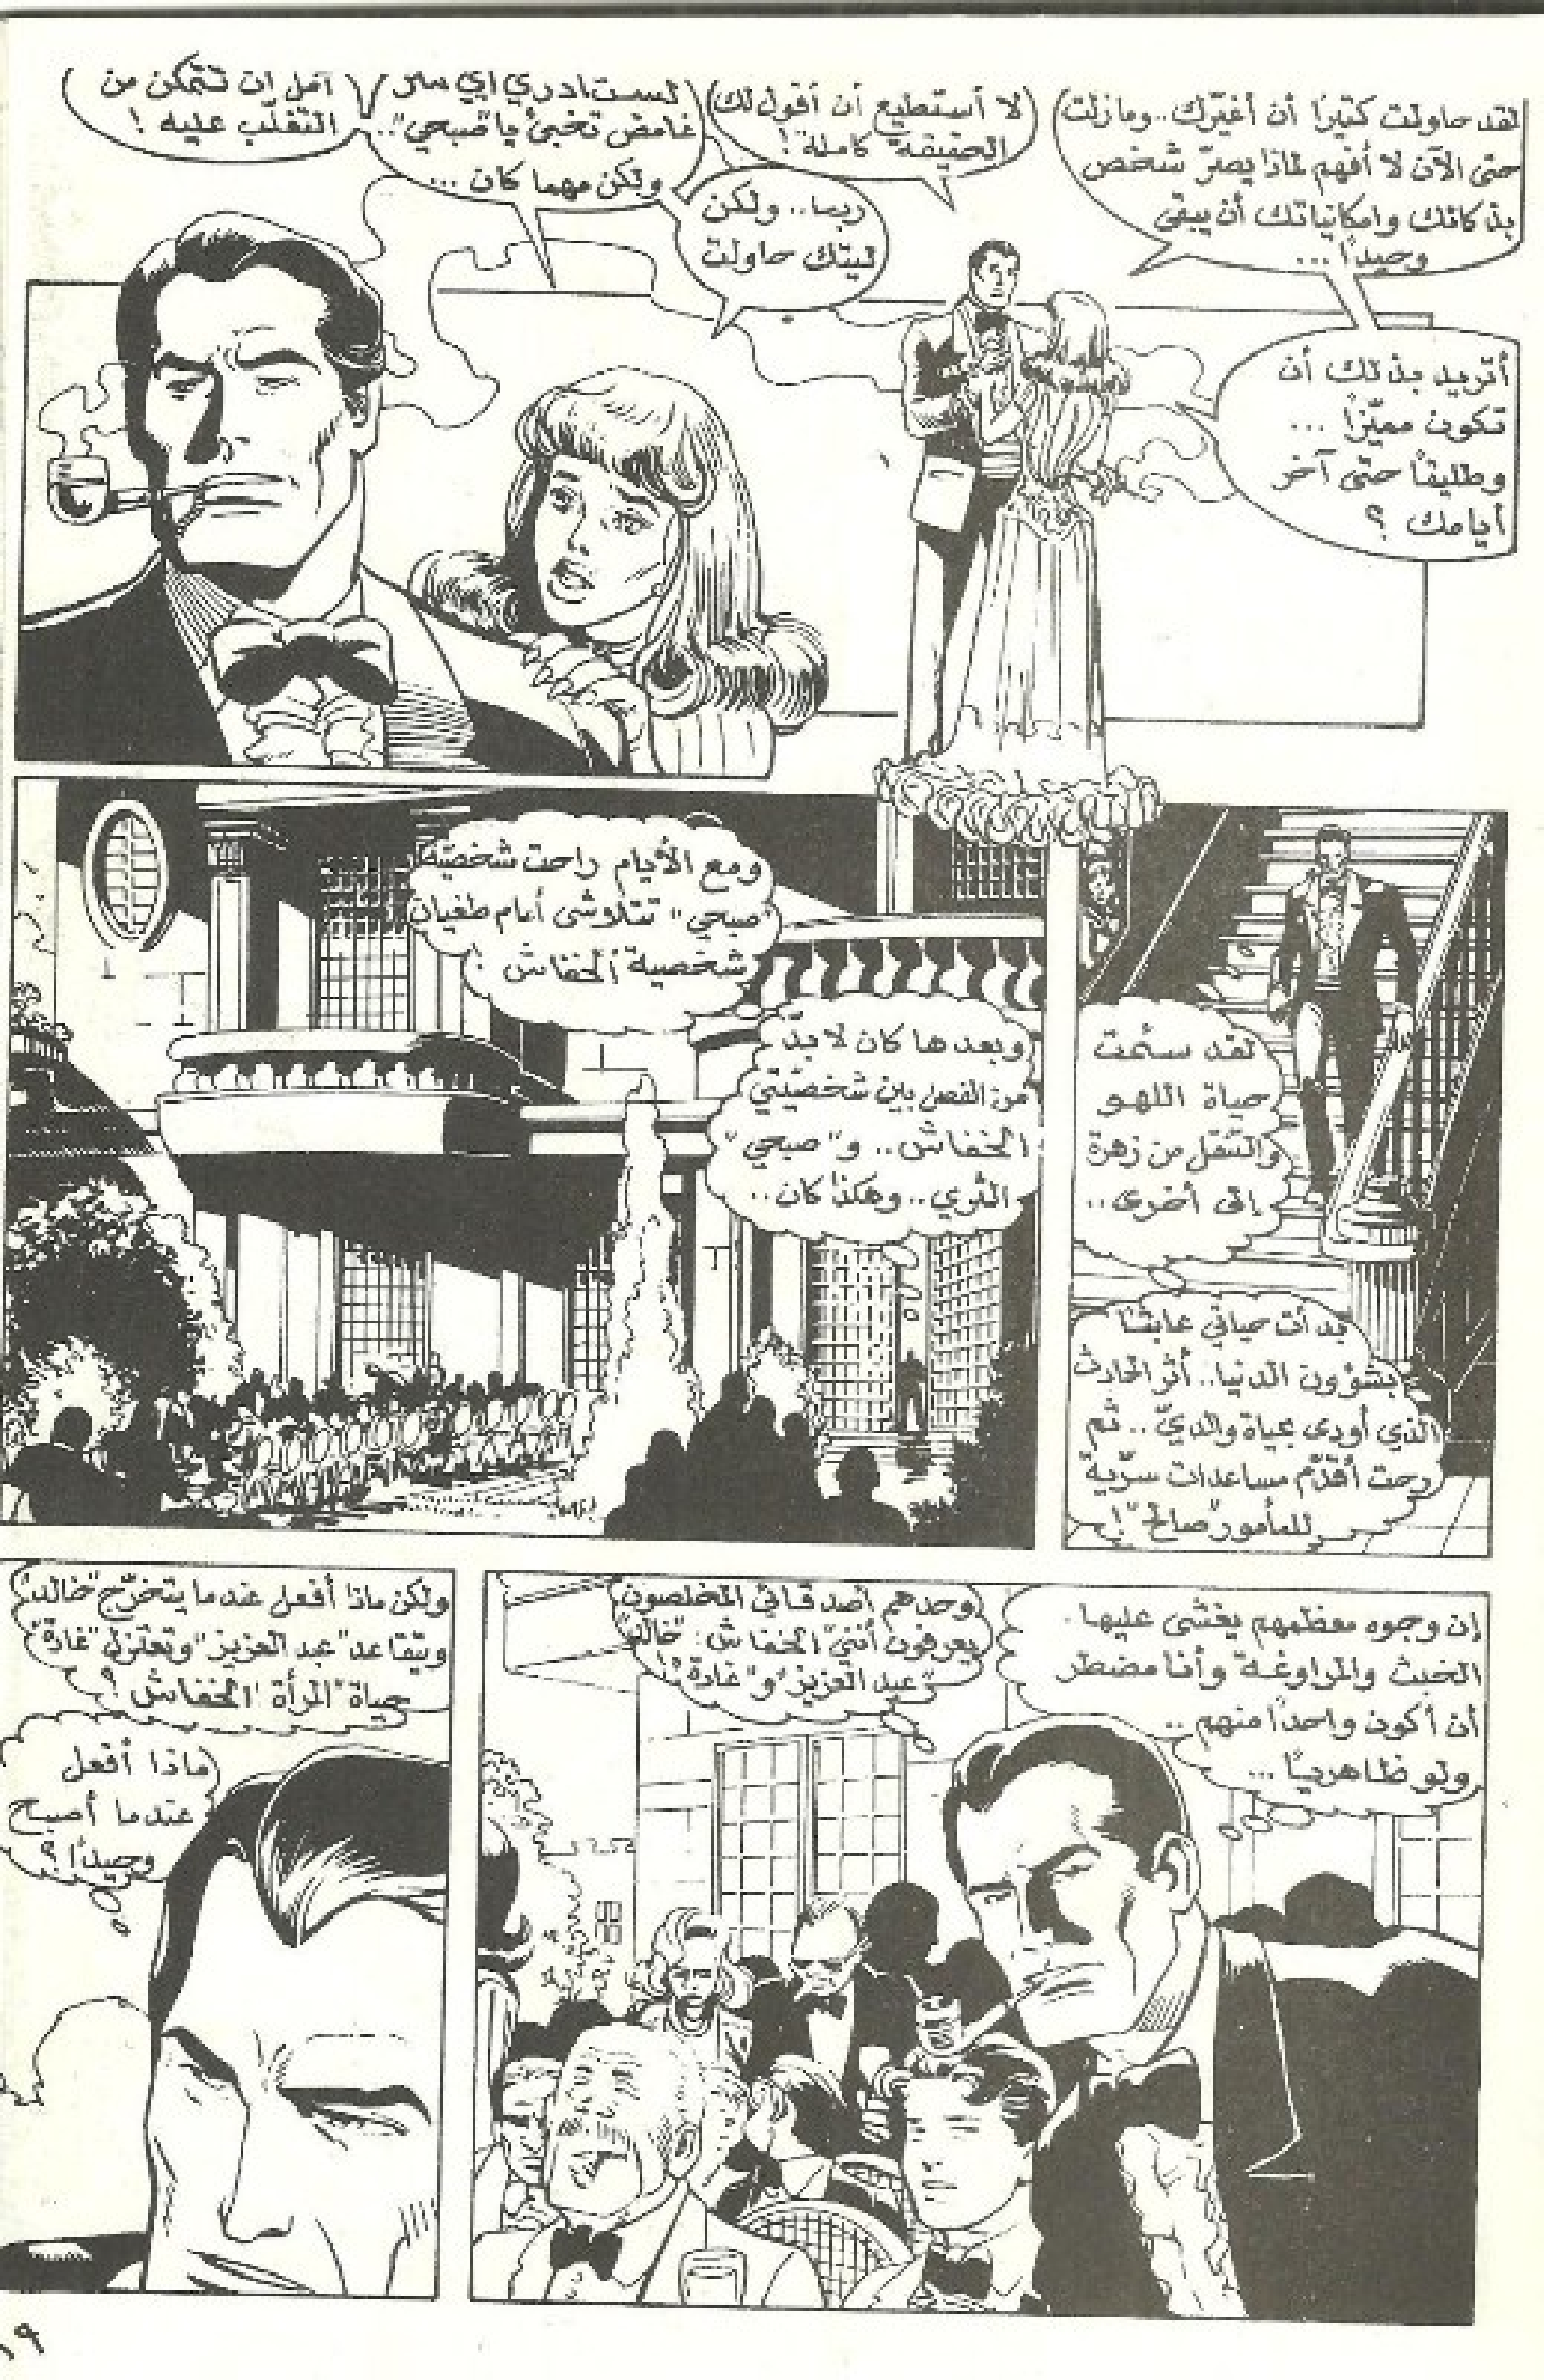 لقد حاولت كثيرًا أن أغيّرك.. ومازلت
حتى الآن لا أفهم لماذا يصرّ شخص
بذكائك وامكانياتك أن يبقى
وحيدًا...
أتريد بذلك أن
تكون مميّزًا...
وطليقًا حتى آخر
أيامك ؟
لا أستطيع أن أقول لك
الحقيقة كاملة !
ربما.. ولكن
ليتك حاولت
لست ادري اي سر
غامض تخبئ يا "صبحي"..
ولكن مهما كان ...
آمل ان تتمكن من
التغلّب عليه !
لقد سئمت
حياة اللهو
والتنقل من زهرة
إلى أخرى..
بدأت حياتي عابثًا
بشؤون الدنيا.. أثر الحادث
الذي أودى بحياة والديّ.. ثم
رحت أقدّم مساعدات سرّية
للمأمور "صالح" !
ومع الأيام راحت شخصيّة
"صبحي" تتلاشى أمام طغيان
شخصية الخفاش !
وبعدها كان لا بدّ
من الفصل بين شخصيّتي
الخفاش.. و"صبحي"
الثري.. وهكذا كان..
إن وجوه معظمهم يغشى عليها
الخبث والمراوغة وأنا مضطر
أن أكون واحدًا منهم ..
ولو ظاهريًا ...
وحدهم أصدقائي المخلصون
يعرفون أنني الخفاش : "خالد"
"عبد العزيز" و"غادة" !
ولكن ماذا أفعل عندما يتخرّج "خالد"
ويتقاعد "عبد العزيز" وتعتزل "غادة"
حياة "المرأة الخفاش" ؟
ماذا أفعل
عندما أصبح
وحيدًا ؟
١٩